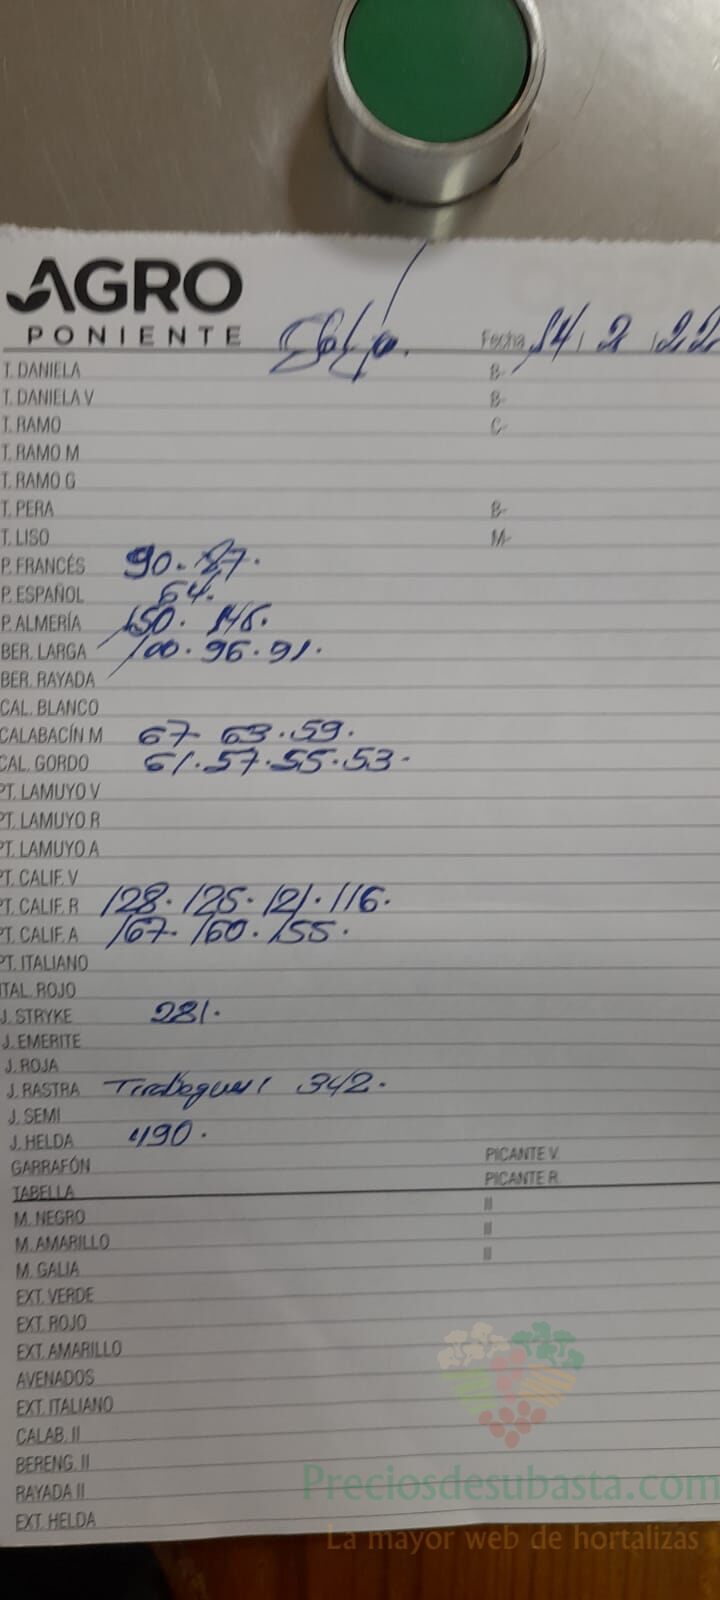 AGRO
PONIENTE
Fecha 14 / 2 / 22
T. DANIELA B-
T. DANIELA V B-
T. RAMO C-
T. RAMO M
T. RAMO G
T. PERA B-
T. LISO M-
P. FRANCÉS 90. 87.
P. ESPAÑOL 64.
P. ALMERÍA 150. 146.
BER. LARGA 100. 96. 91.
BER. RAYADA
CAL. BLANCO
CALABACÍN M 67 63. 59.
CAL. GORDO 61. 57. 55. 53.
PT. LAMUYO V
PT. LAMUYO R
PT. LAMUYO A
PT. CALIF. V
PT. CALIF. R 128. 125. 121. 116.
PT. CALIF. A 167. 160. 155.
PT. ITALIANO
ITAL. ROJO
J. STRYKE 281.
J. EMERITE
J. ROJA
J. RASTRA 342.
J. SEMI
J. HELDA 490.
GARRAFÓN PICANTE V.
TABELLA PICANTE R.
M. NEGRO II
M. AMARILLO II
M. GALIA II
EXT. VERDE
EXT. ROJO
EXT. AMARILLO
AVENADOS
EXT. ITALIANO
CALAB. II
BERENG. II
RAYADA II
EXT. HELDA
Preciosdesubasta.com
La mayor web de hortalizas